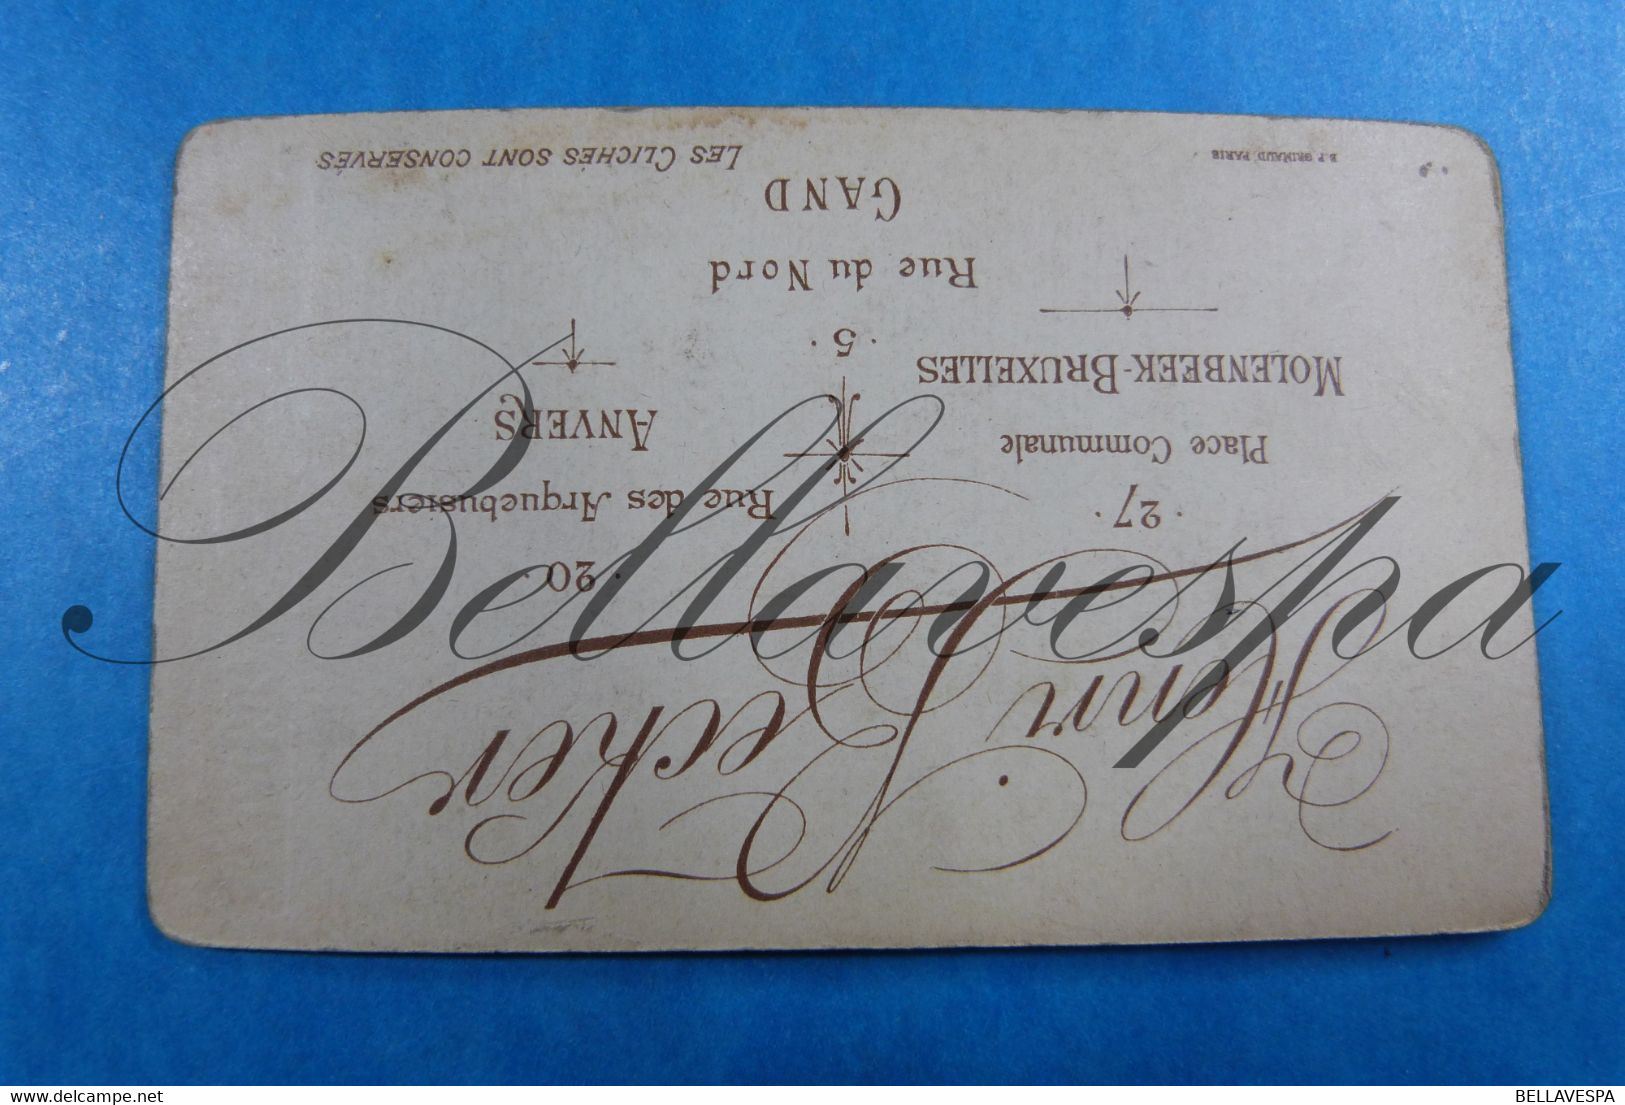 Henri Decker
· 27 ·
Place Communale
MOLENBEEK-BRUXELLES
· 20 ·
Rue des Arquebusiers
ANVERS
· 5 ·
Rue du Nord
GAND
B.P. GRIMAUD, PARIS
LES CLICHÉS SONT CONSERVÉS
Bellavespa
delcampe.net
BELLAVESPA